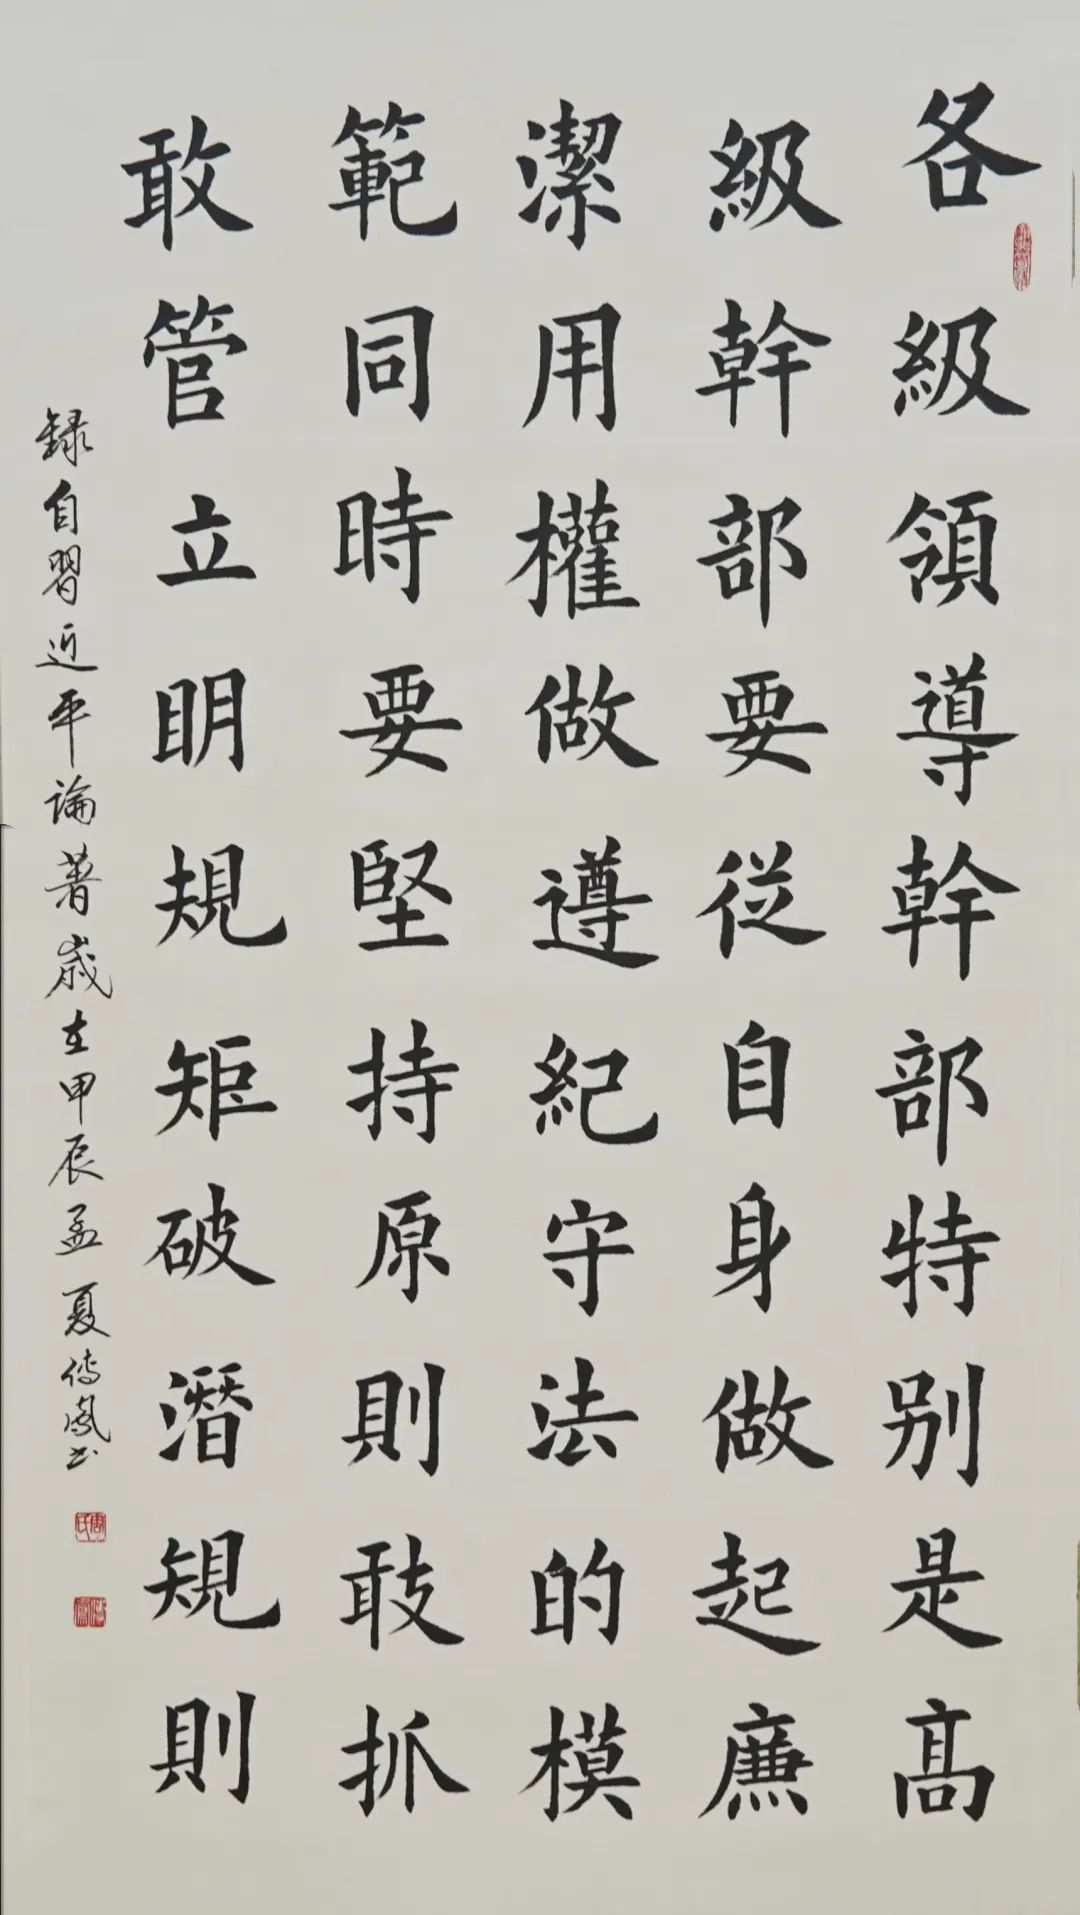 各級領導幹部特别是高
級幹部要從自身做起廉
潔用權做遵紀守法的模
範同時要堅持原則敢抓
敢管立明規矩破潛規則
録自習近平論著歲在甲辰孟夏傳鳳書